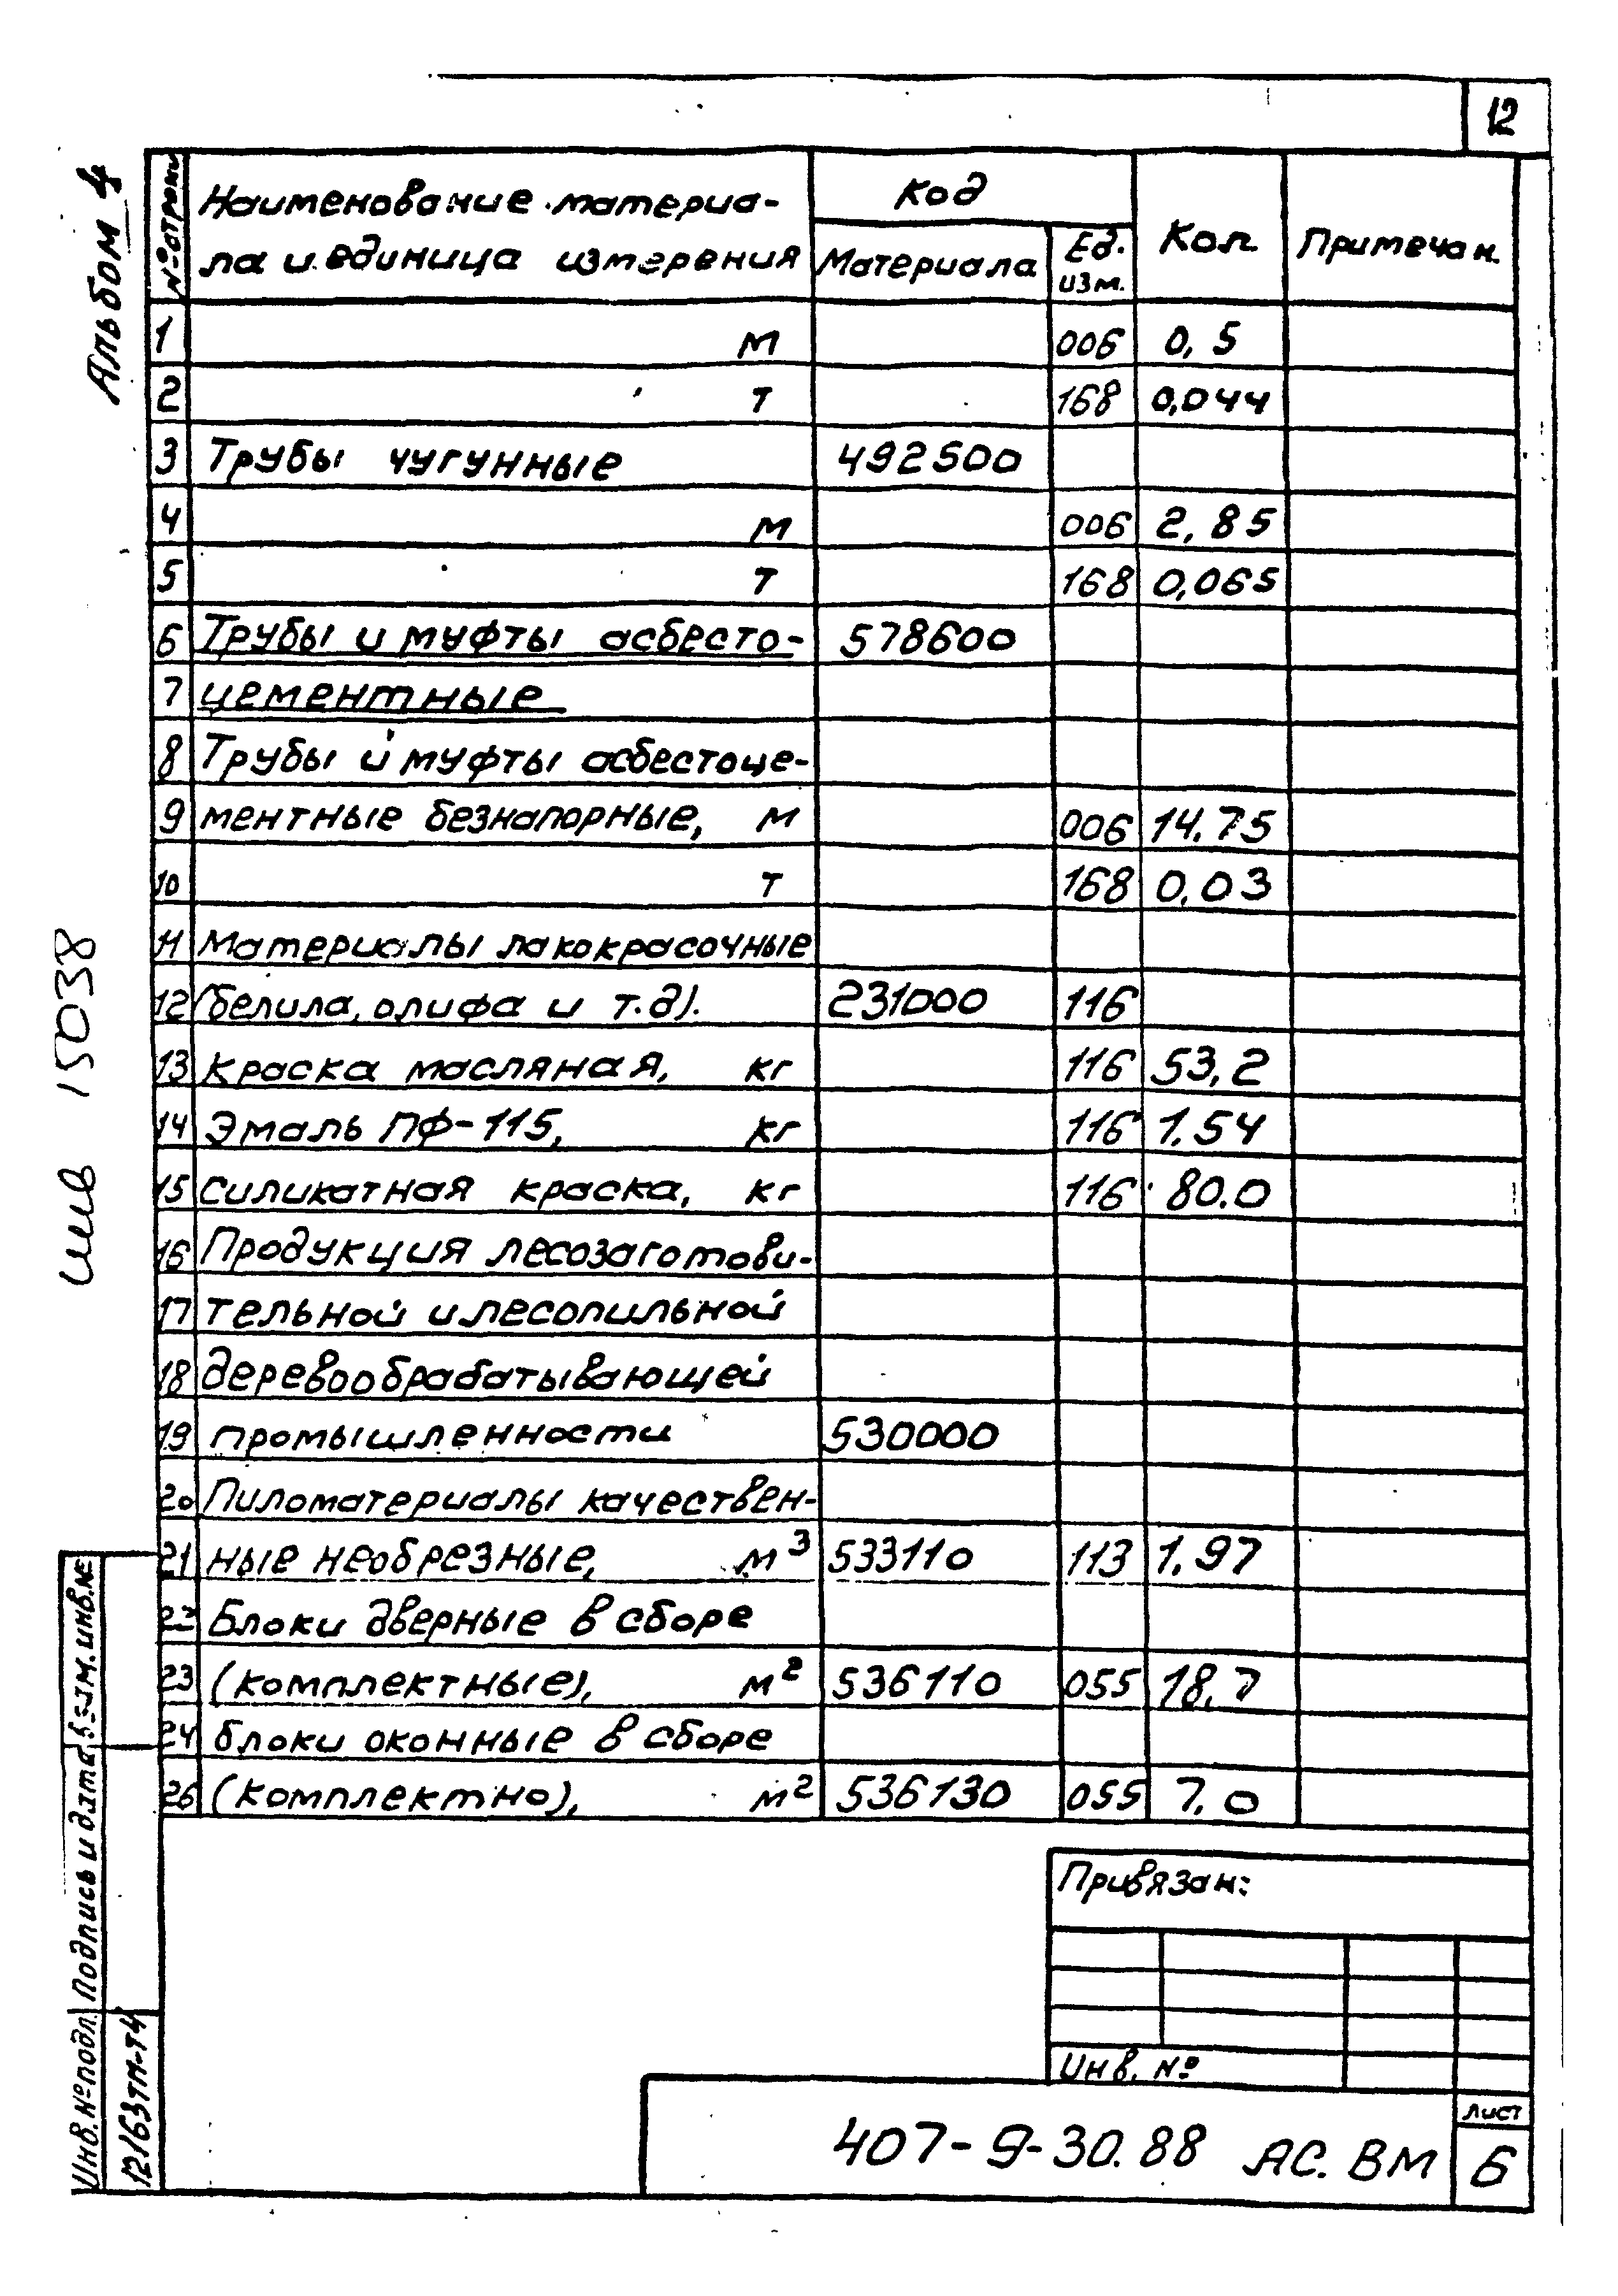 12
Альбом 4
№ строки
Наименование материа-
ла и единица измерения
Код
Материала
Ед.
изм.
Кол.
Примечан.
1 м 006 0,5
2 т 168 0,044
3 Трубы чугунные 492500
4 м 006 2,85
5 т 168 0,065
6 Трубы и муфты асбесто- 578600
7 цементные
8 Трубы и муфты асбестоце-
9 ментные безнапорные, м 006 14.75
10 т 168 0.03
11 Материалы лакокрасочные
12 (белила, олифа и т.д). 231000 116
13 краска масляная, кг 116 53,2
14 Эмаль ПФ-115, кг 116 1.54
15 Силикатная краска, кг 116 80.0
16 Продукция лесозаготови-
17 тельной и лесопильной
18 деревообрабатывающей
19 промышленности 530000
20 Пиломатериалы качествен-
21 ные необрезные, м3 533110 113 1.97
22 Блоки дверные в сборе
23 (комплектные), м2 536110 055 18.7
24 блоки оконные в сборе
26 (комплектно), м2 536130 055 7.0
инв 15038
Взам.инв.№
Подпись и дата
Инв.№подл.
12163тм-т4
Привязан:
Инв. №
407-9-30.88 АС. ВМ
лист
6